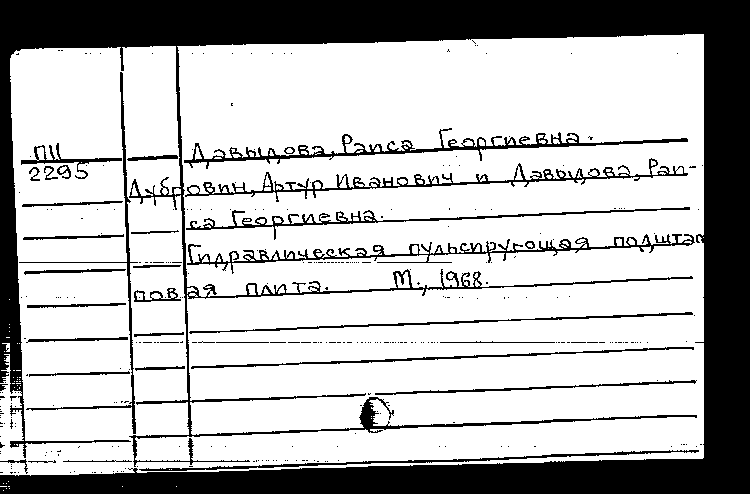 П11 Давыдова, Раиса Георгиевна.
2295
Дубровин, Артур Иванович и Давыдова, Раи-
са Георгиевна.
Гидравлическая пульсирующая подштам
повая плита. М., 1968.